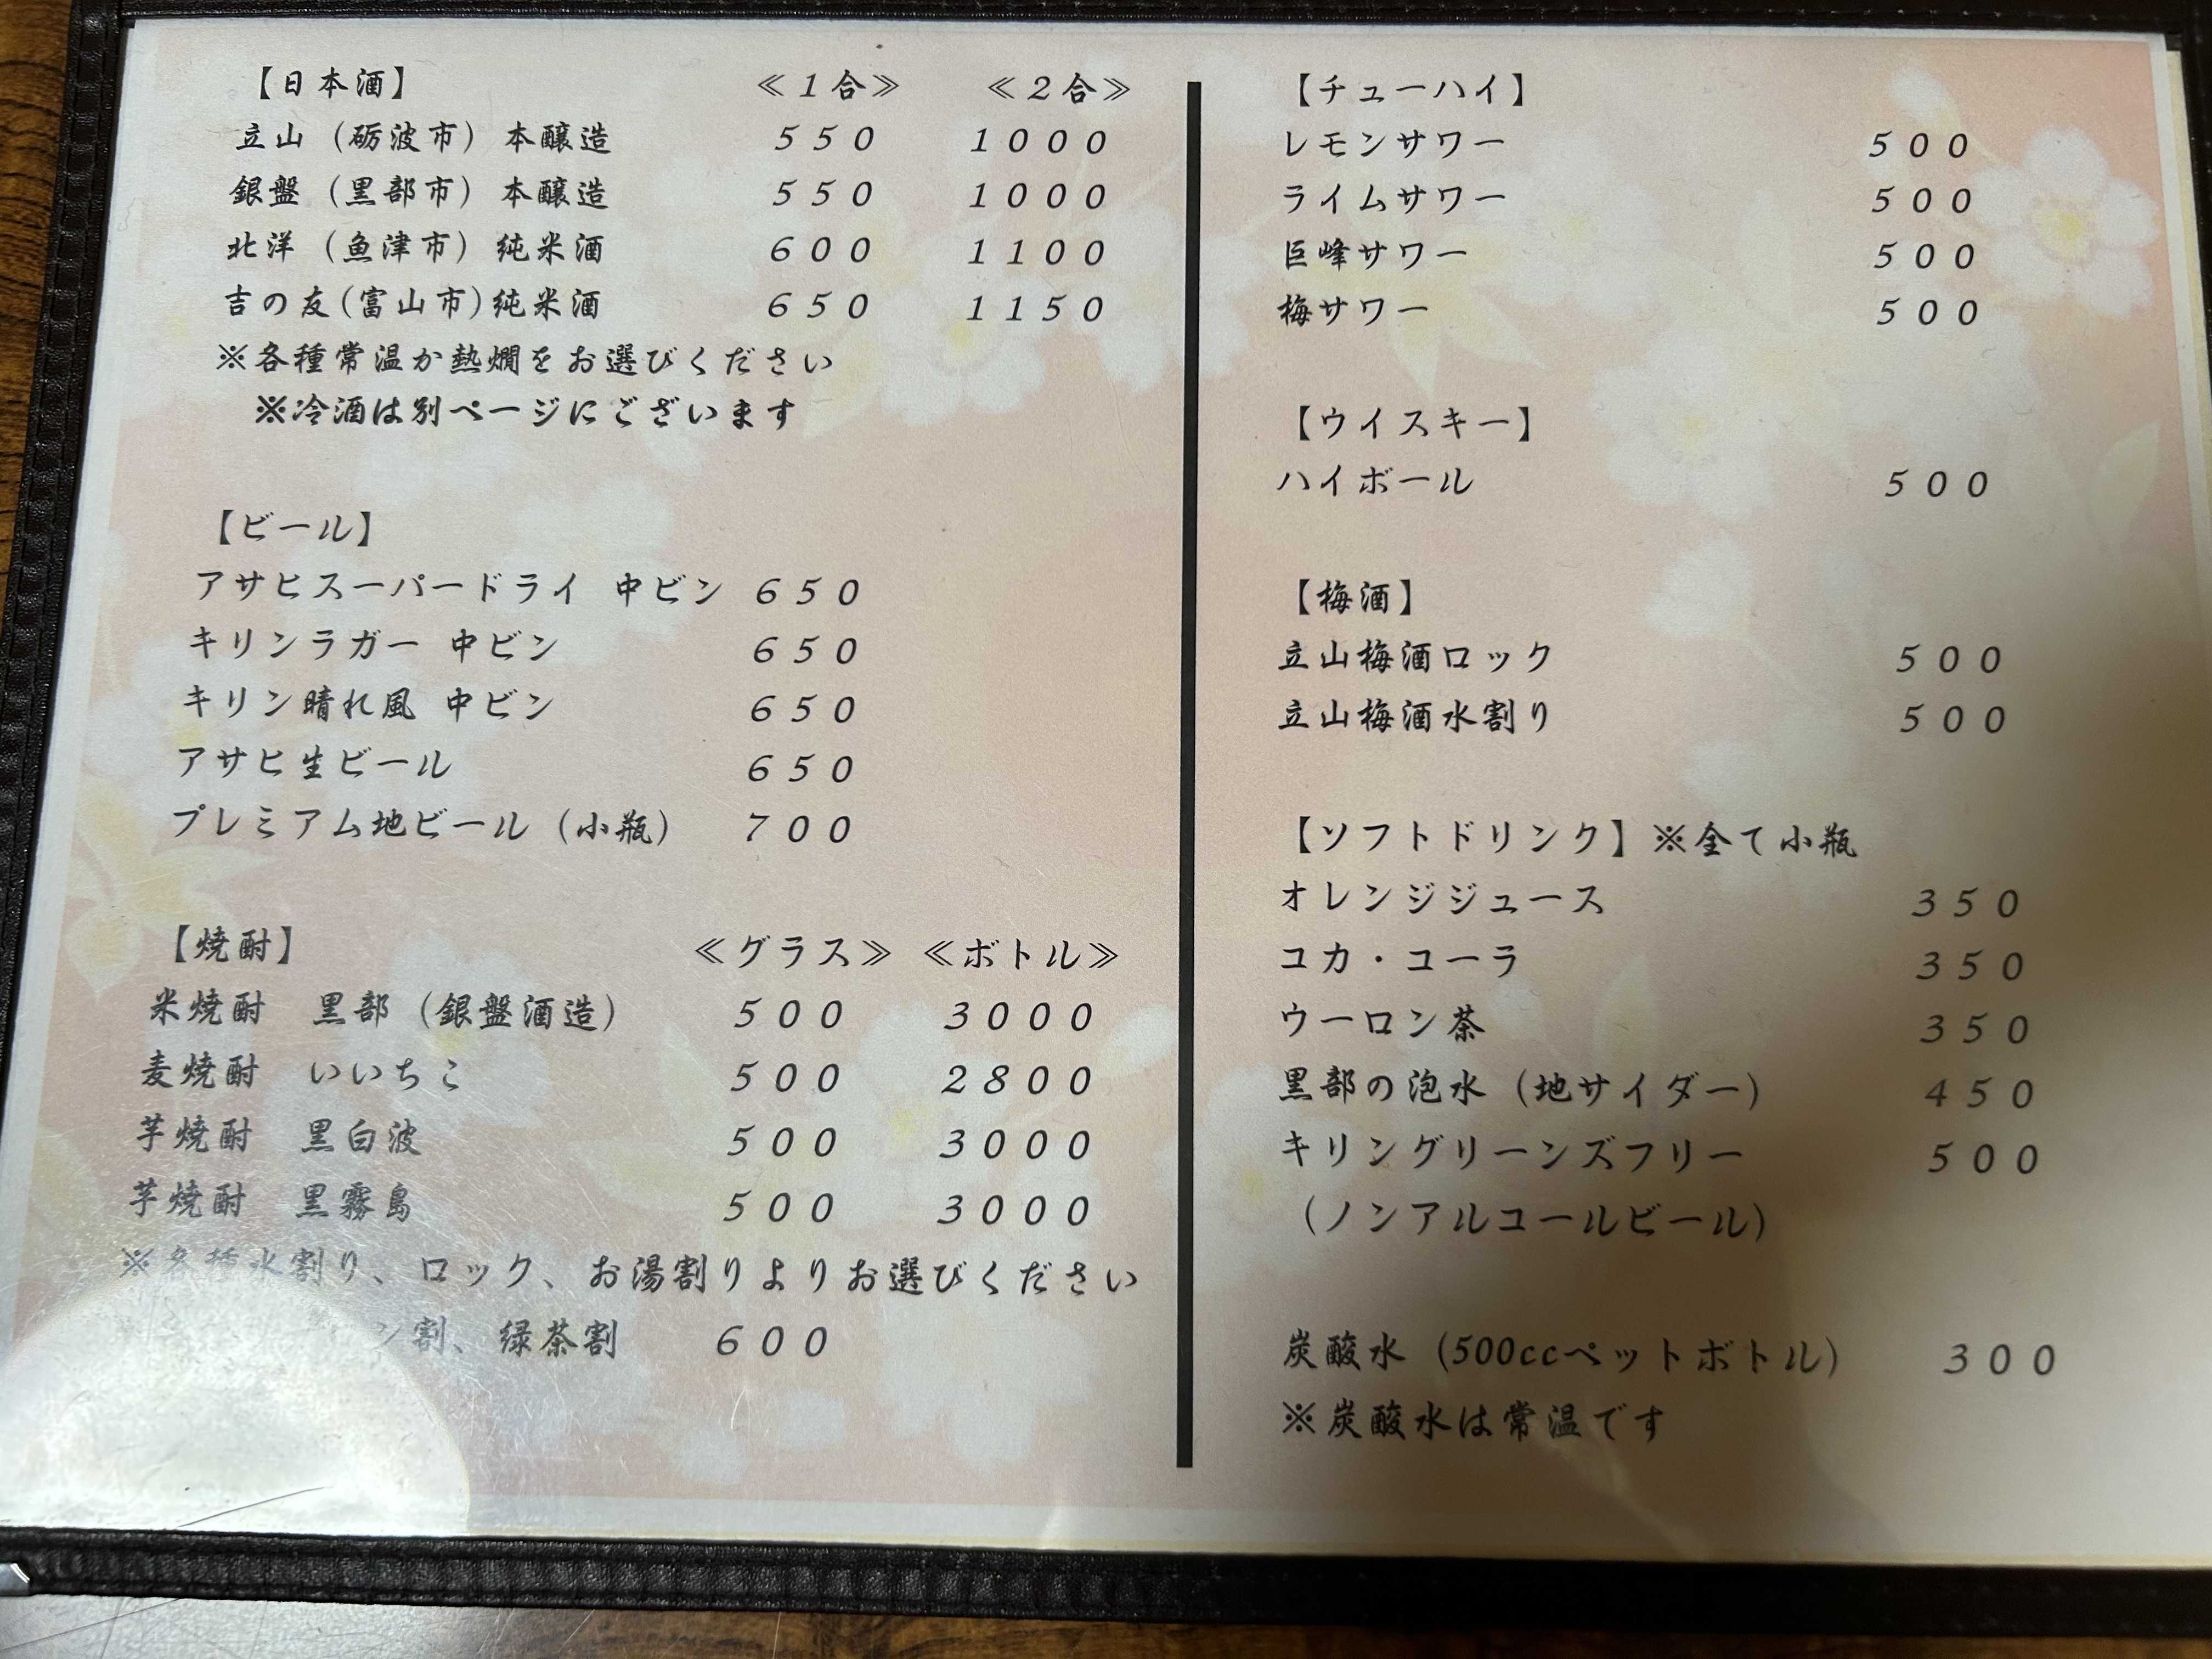 【日本酒】 ≪１合≫ ≪２合≫
立山（砺波市）本醸造 ５５０ １０００
銀盤（黒部市）本醸造 ５５０ １０００
北洋（魚津市）純米酒 ６００ １１００
吉の友(富山市)純米酒 ６５０ １１５０
※各種常温か熱燗をお選びください
※冷酒は別ページにございます
【ビール】
アサヒスーパードライ 中ビン ６５０
キリンラガー 中ビン ６５０
キリン晴れ風 中ビン ６５０
アサヒ生ビール ６５０
プレミアム地ビール（小瓶） ７００
【焼酎】 ≪グラス≫ ≪ボトル≫
米焼酎 黒部（銀盤酒造） ５００ ３０００
麦焼酎 いいちこ ５００ ２８００
芋焼酎 黒白波 ５００ ３０００
芋焼酎 黒霧島 ５００ ３０００
※各種水割り、ロック、お湯割りよりお選びください
ン割、緑茶割 ６００
【チューハイ】
レモンサワー ５００
ライムサワー ５００
巨峰サワー ５００
梅サワー ５００
【ウイスキー】
ハイボール ５００
【梅酒】
立山梅酒ロック ５００
立山梅酒水割り ５００
【ソフトドリンク】※全て小瓶
オレンジジュース ３５０
コカ・コーラ ３５０
ウーロン茶 ３５０
黒部の泡水（地サイダー） ４５０
キリングリーンズフリー ５００
（ノンアルコールビール）
炭酸水（500ccペットボトル） ３００
※炭酸水は常温です